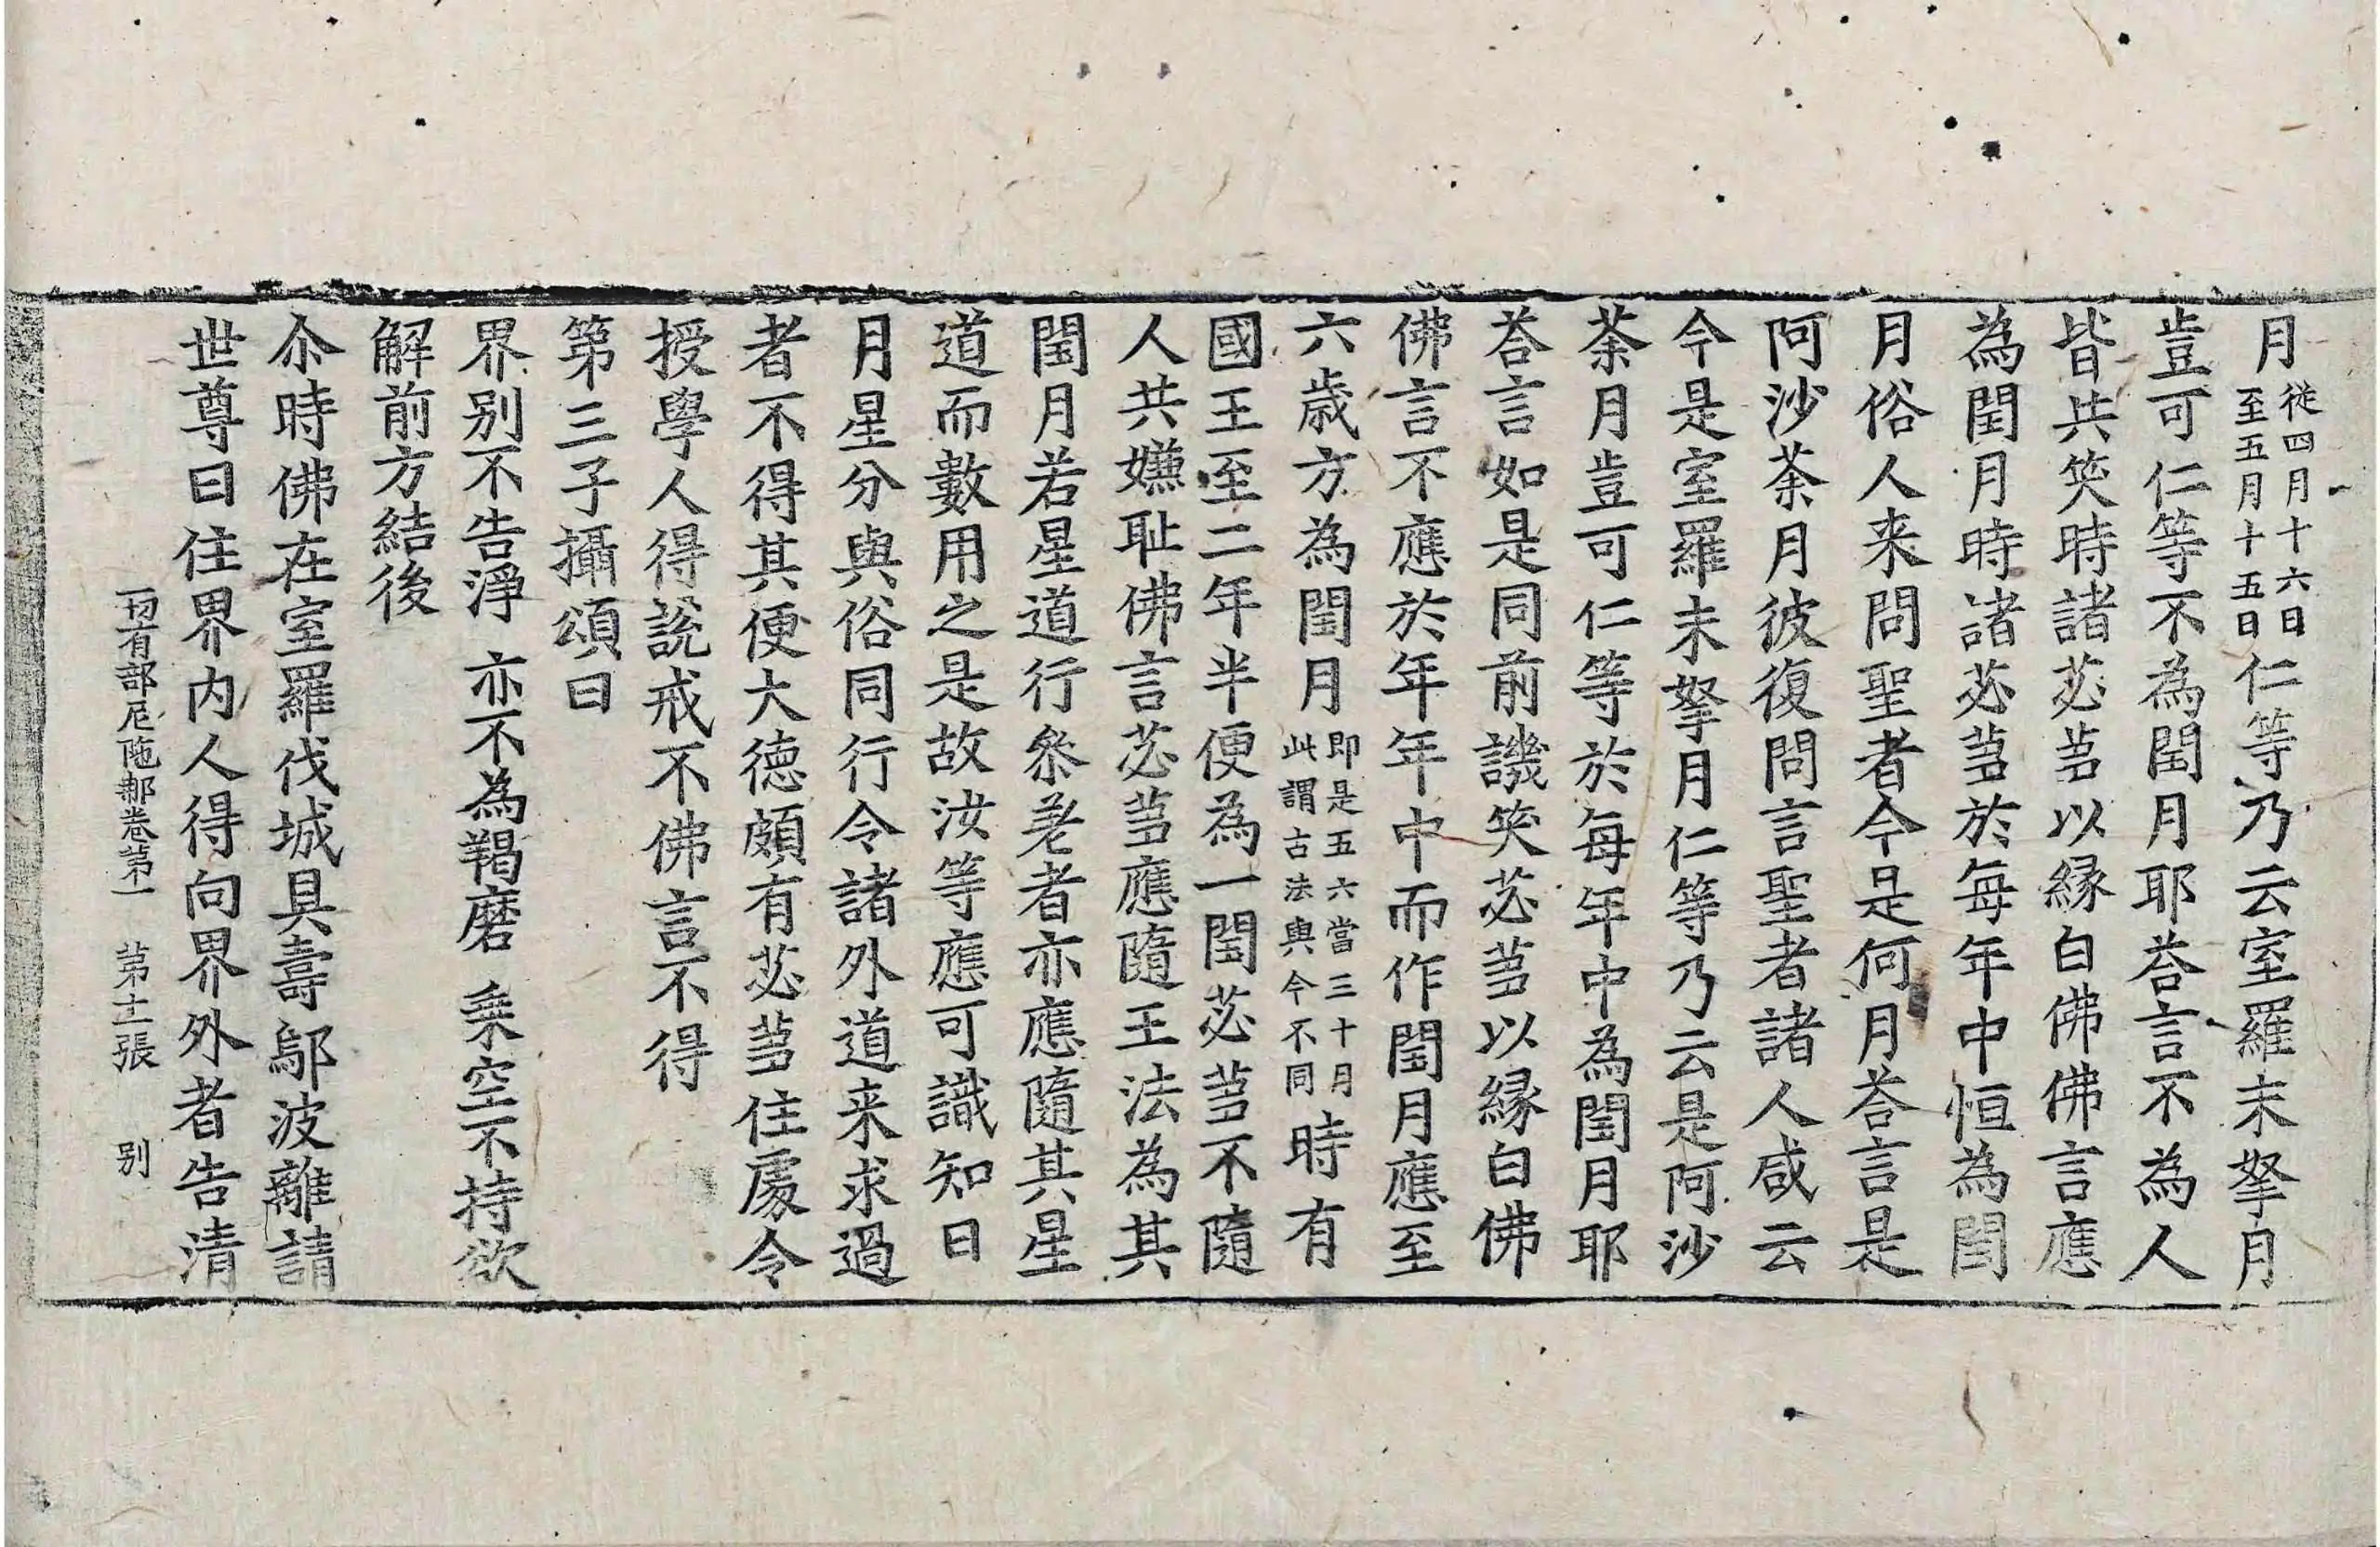 月從四月十六日至五月十五日仁等乃云室羅末拏月
豈可仁等不為閏月耶荅言不為人
皆共笑時諸苾芻以縁白佛佛言應
為閏月時諸苾芻於每年中恒為閏
月俗人来問聖者今是何月荅言是
阿沙荼月彼復問言聖者諸人咸云
今是室羅末拏月仁等乃云是阿沙
荼月豈可仁等於每年中為閏月耶
荅言如是同前譏笑苾芻以縁白佛
佛言不應於年年中而作閏月應至
六歳方為閏月即是五六當三十月此謂古法與今不同時有
國王至二年半便為一閏苾芻不隨
人共嫌耻佛言苾芻應隨王法為其
閏月若星道行叅差者亦應隨其星
道而數用之是故汝等應可識知日
月星分與俗同行令諸外道来求過
者不得其便大徳頗有苾芻住處令
授學人得說戒不佛言不得
第三子攝頌曰
界別不告淨　亦不為羯磨　乗空不持欲
解前方結後
尒時佛在室羅伐城具壽鄔波離請
世尊曰住界内人得向界外者告清
一切有部尼陁那卷第一　第十二張　別